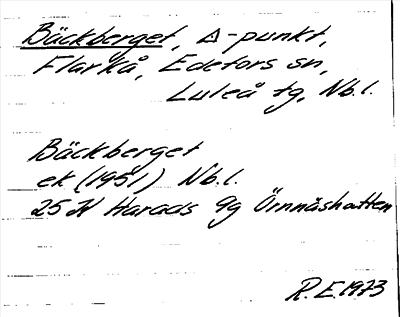 Bäckberget, △-punkt,
Flarkå, Edefors sn,
Luleå tg, Nb.l.
Bäckberget
ek (1951) Nb.l.
25 K Harads 9g Örnnåshatten
R.E. 1973